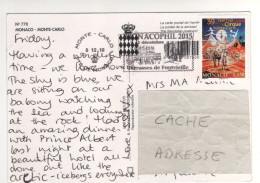 N° 770
MONACO - MONTE-CARLO
Friday.
Having a wonderful
time - we
The sky is blue we
are sitting on our
balcony watching
the sea and looking
at the rock! Had
an amazing dinner
with Prince Albert
last night at a
beautiful hotel all
done out like the
arctic - icebergs
MONTE-CARLO
MONACOPHIL 2015
Terrasses de Fontvieille
Cirque
MONACO
Mrs M A
CACHE
ADRESSE